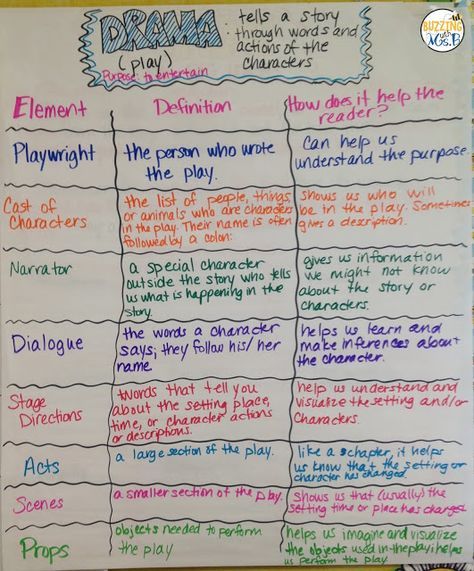 DRAMA
(play)
Purpose: to entertain
: tells a story
through words and
actions of the
characters
BUZZING
with
Ms.B
Element
Definition
How does it help the
reader?
Playwright
the person who wrote
the play.
can help us
understand the purpose.
Cast of
Characters
the list of people, things
or animals who are characters
in the play. Their name is often
followed by a colon:
shows us who will
be in the play. Sometimes
gives a description.
Narrator
a special character
outside the story who tells
us what is happening in the
story.
gives us information
we might not know
about the story or
characters.
Dialogue
the words a character
says; they follow his/her
name.
helps us learn and
make inferences about
the character.
Stage
Directions
words that tell you
about the setting place,
time, or character actions
or descriptions.
help us understand and
visualize the setting and/or
characters.
Acts
a large section of the play.
like a chapter, it helps
us know that the setting or
character has changed.
Scenes
a smaller section of the play.
shows us that (usually) the
setting time or place has changed.
Props
objects needed to perform
the play
helps us imagine and visualize
the objects used in the play; helps
us perform the play.